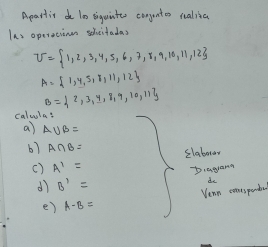 Apartir de los siguientes conjuntos realiza
las operaciones solicitadas
U = {1,2,3,4,5,6,7,8,9,10,11,12}
A = {1,4,5,8,11,12}
B = {2,3,4,8,9,10,11}
calcula:
a) A∪B =
b) A∩B =
c) A' =
d) B' =
e) A-B =
Elaborar
Diagrama
de
Venn